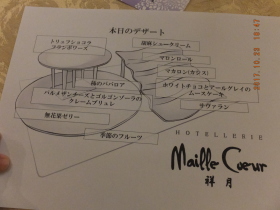 本日のデザート
トリュフショコラ
フランボワーズ
淡雪シュークリーム
マロンロール
マカロン(カシス)
ホワイトチョコとアールグレイの
ムースケーキ
サヴァラン
桃のババロア
パルメザンチーズとゴルゴンゾーラの
クレームブリュレ
無花果ゼリー
季節のフルーツ
HOTELLERIE
Maille Cœur
祥月
2017.10.28 18:47